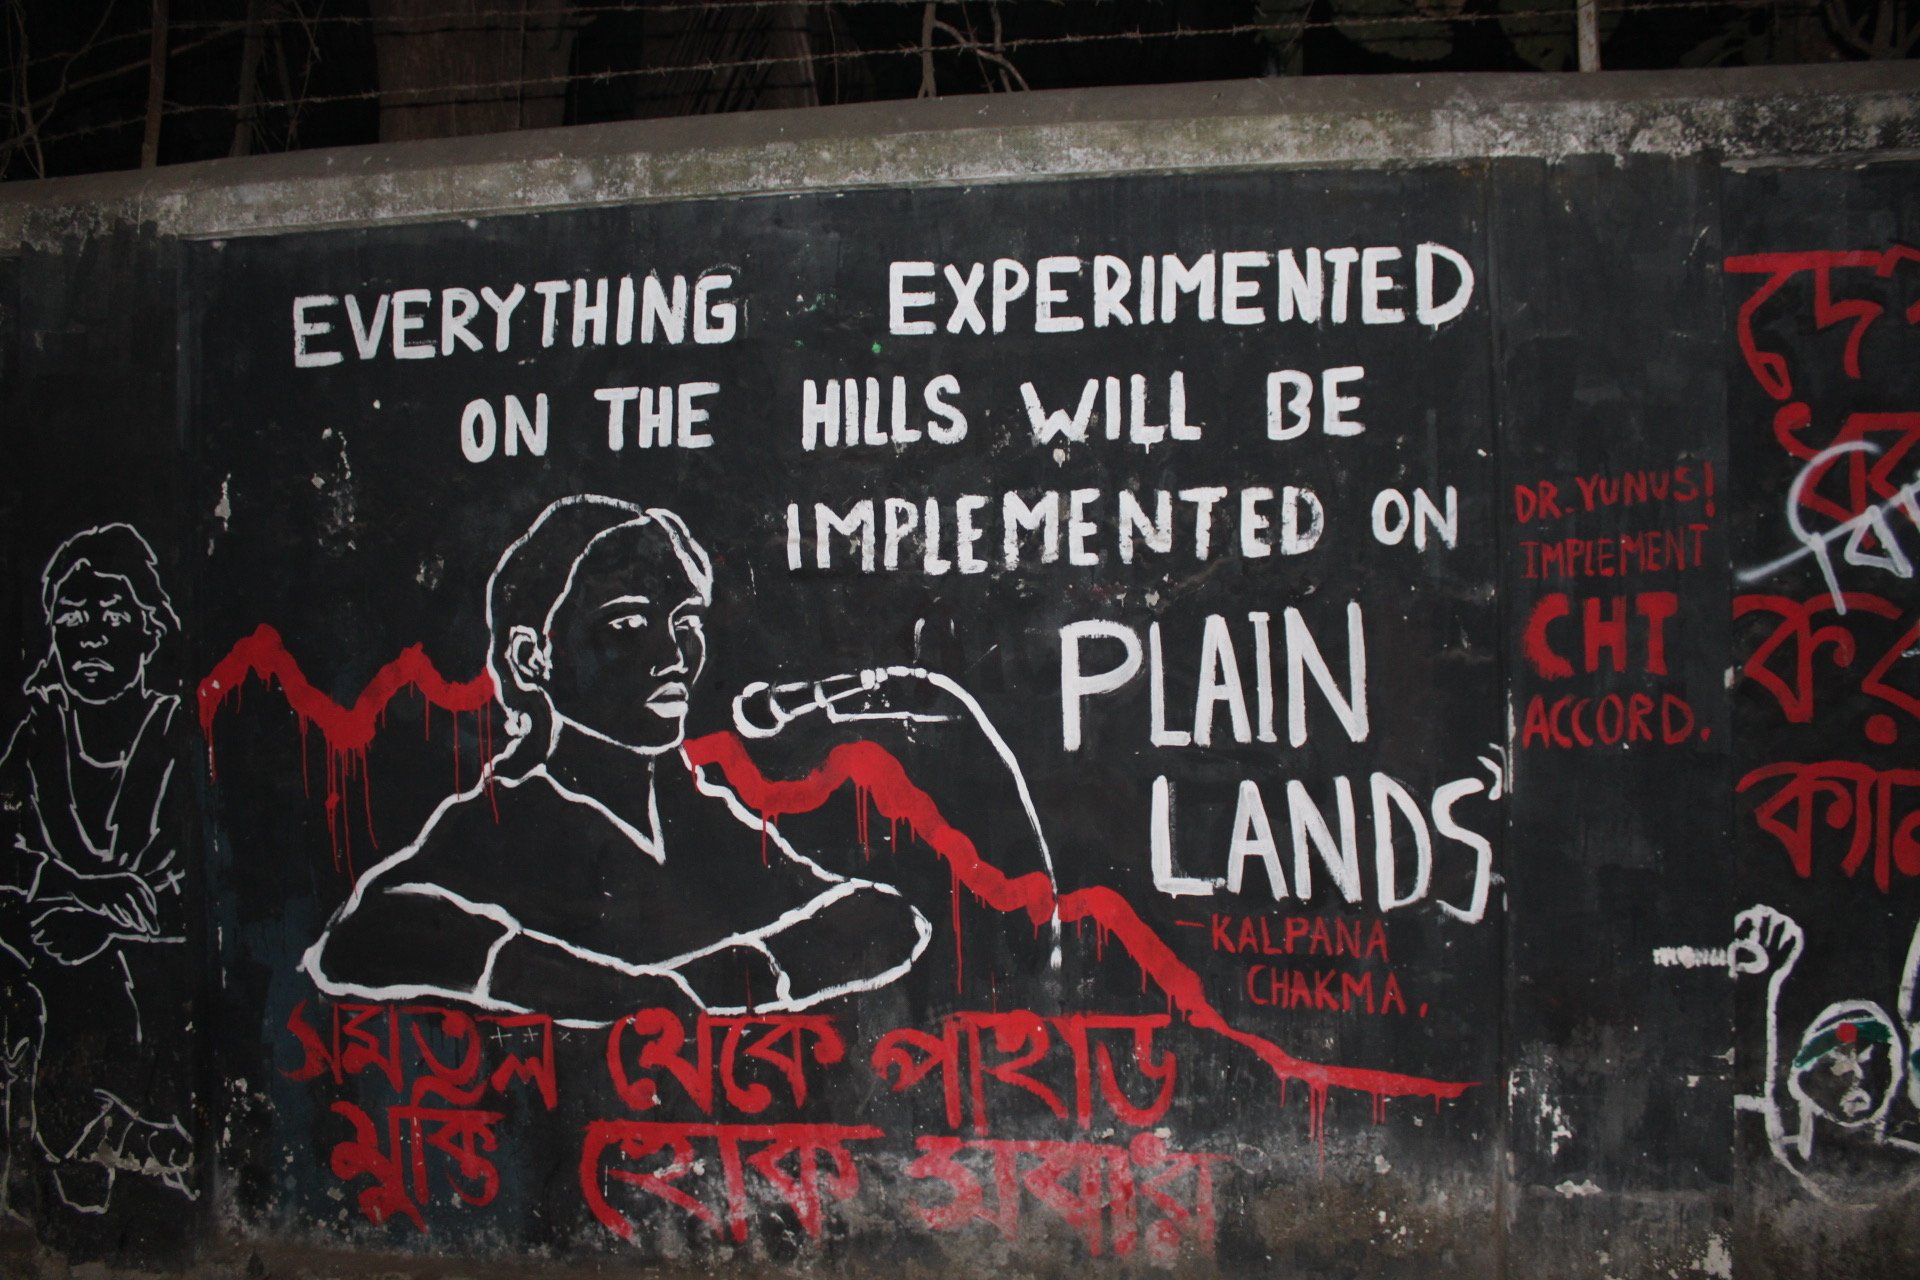 EVERYTHING EXPERIMENTED
ON THE HILLS WILL BE
IMPLEMENTED ON
"PLAIN
LANDS"
— KALPANA
CHAKMA.
সমতল থেকে পাহাড়
মুক্তি হোক সবার
DR. YUNUS!
IMPLEMENT
CHT
ACCORD.